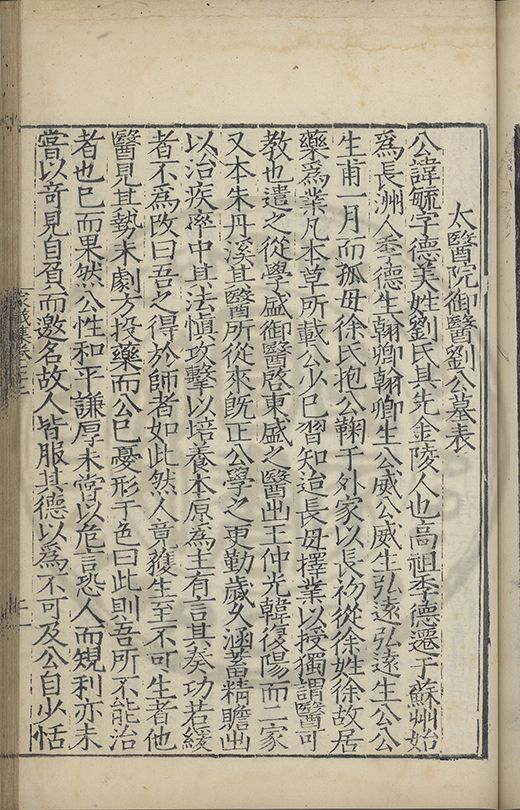 太醫院御醫劉公墓表
公諱毓字德美姓劉氏其先金陵人也高祖季德遷于蘇州始
爲長洲人季德生翰卿翰卿生公威公威生弘遠弘遠生公公
生甫一月而孤母徐氏抱公鞠于外家以長初從徐姓徐故居
藥爲業凡本草所載公少已習知迨長母擇業以授獨謂醫可
教也遣之從學盛御醫啓東盛之醫出王仲光韓復陽而二家
又本朱丹溪其醫所從來旣正公學之更勤歲久涵蓄精贍出
以治疾率中其法愼攻擊以培養本原爲主有言其奏功若緩
者不爲改曰吾之得於師者如此然人竟獲生至不可生者他
醫見其勢未劇方投藥而公已憂形于色曰此則吾所不能治
者也已而果然公性和平謙厚未嘗以危言恐人而規利亦未
嘗以奇見自負而邀名故人皆服其德以爲不可及公自少恬
家藏集卷七十二